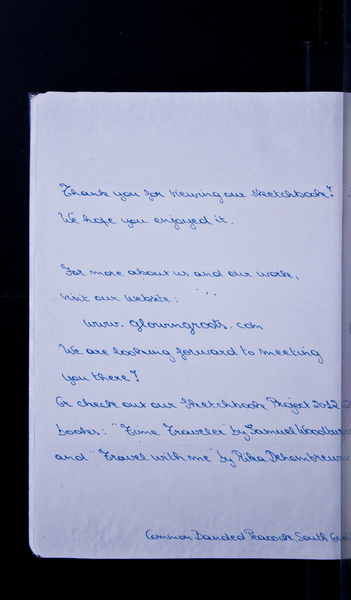 Thank you for viewing our sketchbook!
We hope you enjoyed it.
For more about us and our work,
visit our website:
www.glowingroots.com
We are looking forward to meeting
you there!
Or check out our Sketchbook Project 2012
books: "Time Traveler" by Samuel
and "Travel with me" by Rika
Common Banded Peacock, South